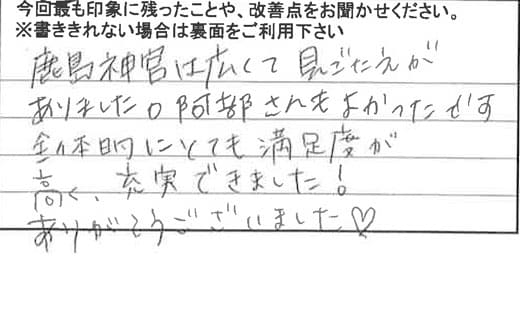 今回最も印象に残ったことや、改善点をお聞かせください。
※書ききれない場合は裏面をご利用下さい
鹿島神宮は広くて見ごたえが
ありました。阿部さんもよかったです
全体的にとても満足度が
高く、充実できました！
ありがとうございました♡